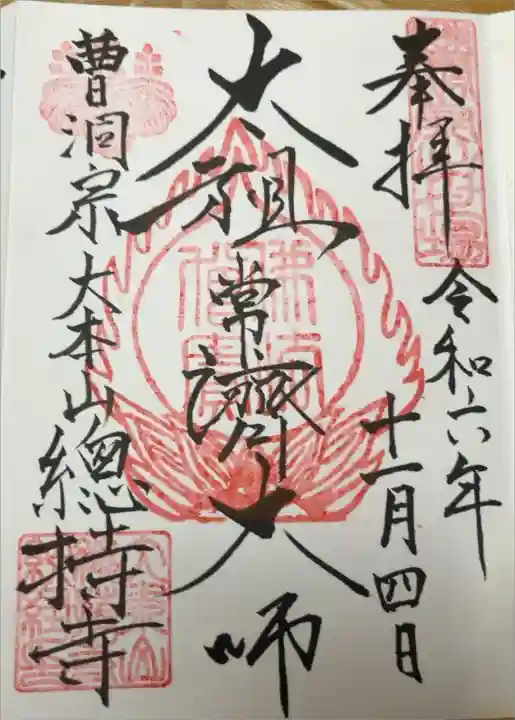 奉拝
令和六年
十一月四日
太祖常濟大師
曹洞宗大本山總持寺